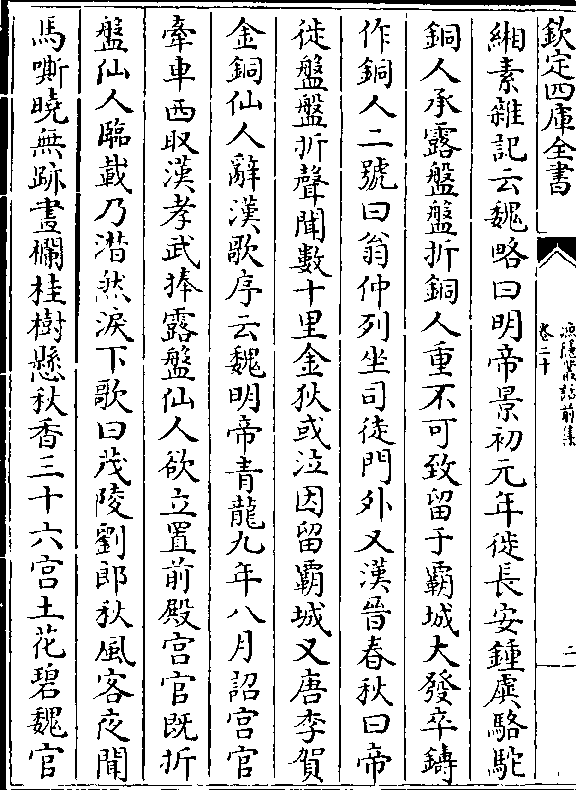 欽定四庫全書
漁隱叢話前集
卷二十
二
緗素雜記云魏略曰明帝景初元年徙長安鍾虡駱駝
銅人承露盤盤折銅人重不可致留于霸城大發卒鑄
作銅人二號曰翁仲列坐司徒門外又漢晉春秋曰帝
徙盤盤折聲聞數十里金狄或泣因留霸城又唐李賀
金銅仙人辭漢歌序云魏明帝青龍九年八月詔宫官
牽車西取漢孝武捧露盤仙人欲立置前殿宫官既折
盤仙人臨載乃潸然淚下歌曰茂陵劉郎秋風客夜聞
馬嘶曉無跡畫欄桂樹懸秋香三十六宫土花碧魏官